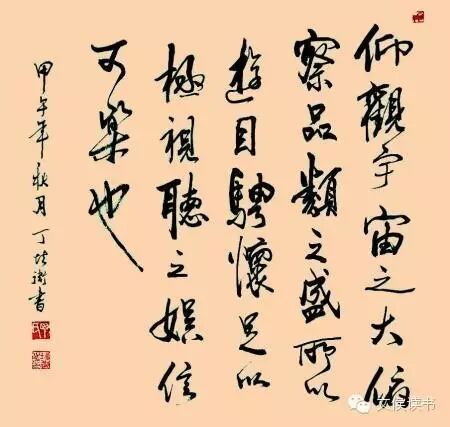 仰觀宇宙之大俯
察品類之盛所以
遊目騁懷足以
極視聽之娛信
可樂也
甲午年秋月丁書
文侯读书